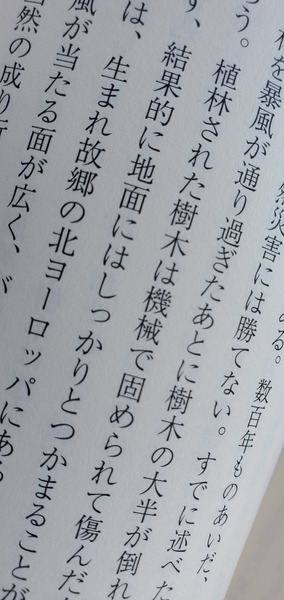 ある。数百年ものあいだ、
然災害には勝てない。すでに述べた
を暴風が通り過ぎたあとに樹木の大半が倒れ
う。植林された樹木は機械で固められて傷んだ
ず、結果的に地面にはしっかりとつかまることが
は、生まれ故郷の北ヨーロッパにある
風が当たる面が広く、
当然の成り行